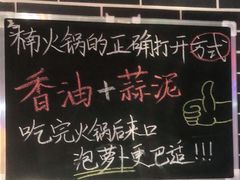 楠火锅的正确打开方式
香油+蒜泥
吃完火锅后来口
泡萝卜更巴适!!!